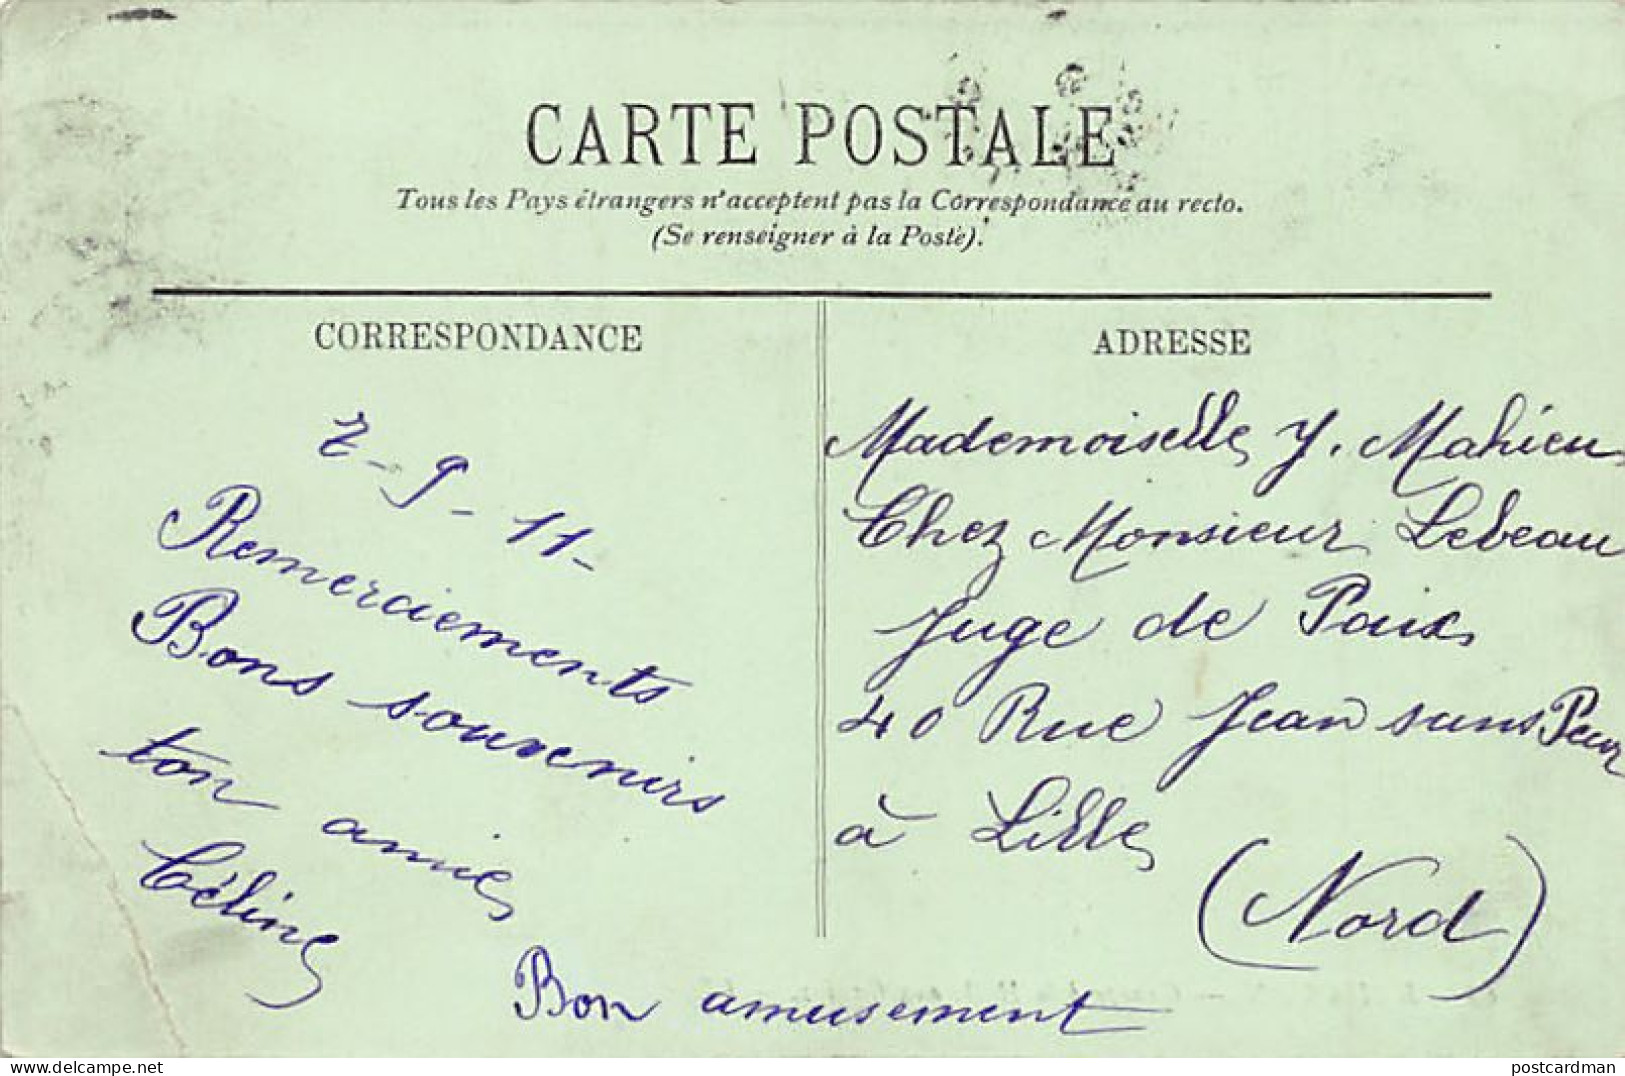 CARTE POSTALE
Tous les Pays étrangers n'acceptent pas la Correspondance au recto.
(Se renseigner à la Poste).
CORRESPONDANCE
7-9-11-
Remerciements
Bons souvenirs
ton amie
Céline
Bon amusement
ADRESSE
Mademoiselle J. Mahieu
Chez Monsieur Lebeau
Juge de Paix
40 Rue Jean sans Peur
à Lille
(Nord)
Ma collection sur delcampe.net
postcardman